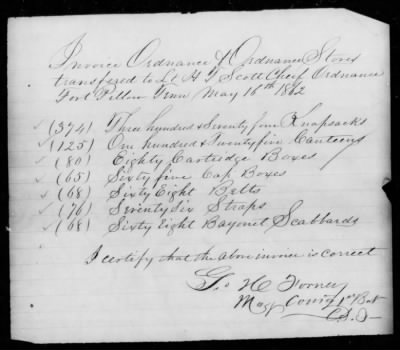 Invoice Ordnance & Ordnance Stores
transfered to Lt H T Scott Chief Ordnance
Fort Pillow Tenn May 16th 1862
(374) Three hundred & Seventy five Knapsacks
(125) One hundred & Twenty five Canteens
(80) Eighty Cartridge Boxes
(65) Sixty five Cap Boxes
(68) Sixty Eight Belts
(76) Seventy Six Straps
(68) Sixty Eight Bayonet Scabbards
I certify that the above invoice is correct
Geo H Forney
Maj Comdg 1st Bat